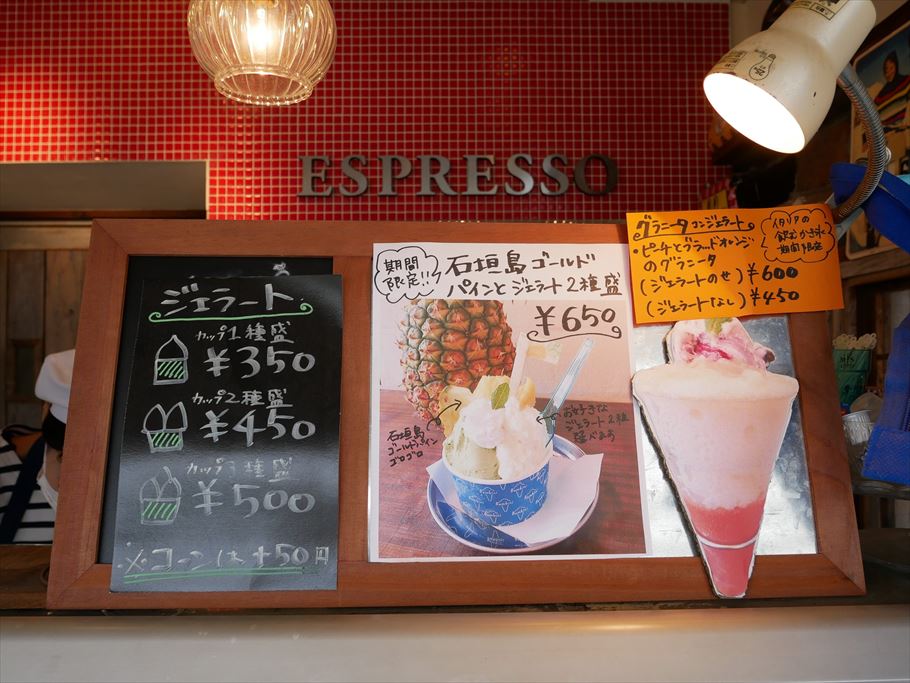 ESPRESSO
ジェラート
カップ1種盛
¥350
カップ2種盛
¥450
カップ3種盛
¥500
※コーンは+50円
期間
限定!!
石垣島ゴールド
パインとジェラート2種盛
¥650
石垣島
ゴールドパイン
ゴロゴロ
お好きな
ジェラート2種
選べます
グラニータコンジェラート
イタリアの
飲むかき氷
期間限定
・ピーチとブラッドオレンジ
のグラニータ
(ジェラートのせ)¥600
(ジェラートなし)¥450